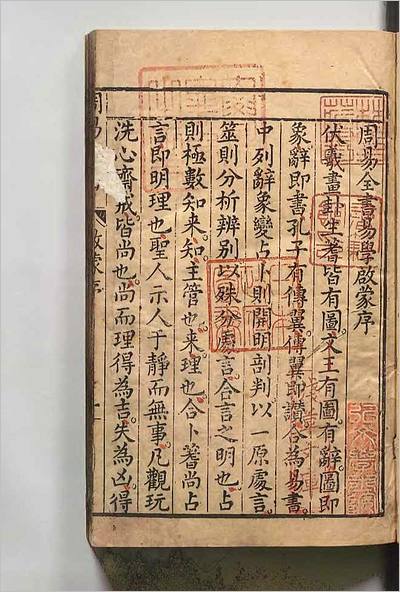 周易全書易學啟蒙序
伏羲畫卦生蓍皆有圖文王有圖有辭圖即
象辭即書孔子有傳翼傳翼即讚合為易書
中列辭象變占卜則開明剖判以一原處言
筮則分析辨別以殊分處言合言之明也占
則極數知來知主管也來理也合卜蓍尚占
言即明理也聖人示人于靜而無事凡觀玩
洗心齊戒皆尚也尚而理得為吉失為凶得